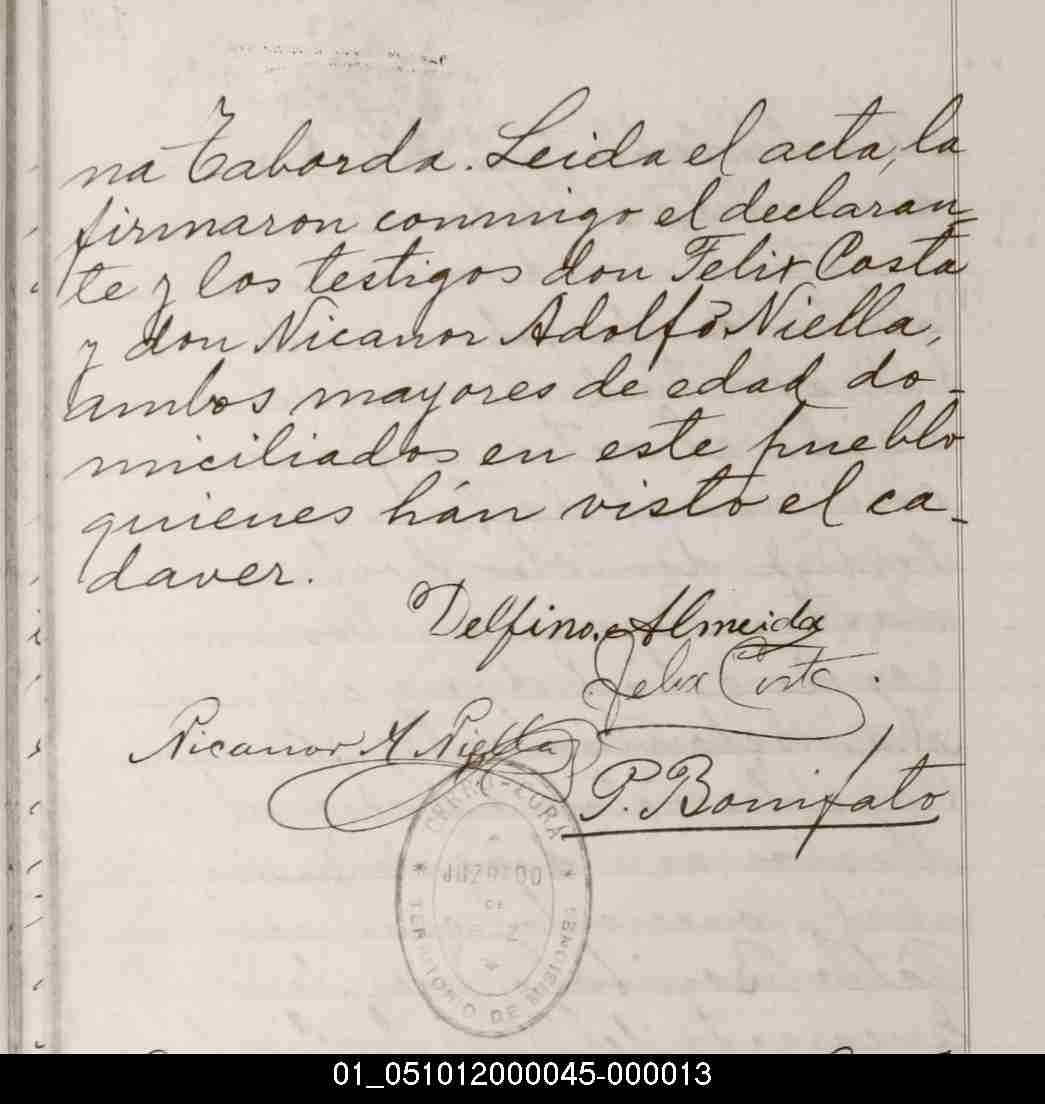 na Taborda. Leida el acta, la
firmaron conmigo el declaran-
te y los testigos don Felix Costa
y don Nicanor Adolfo Niella,
ambos mayores de edad do-
miciliados en este pueblo
quienes hán visto el ca-
daver.
Delfino Almeida
Felix Costa.
Nicanor A Niella
P. Bonifato
CERRO-CORA
JUZGADO
DE
TERRITORIO DE MISIONES
01_051012000045-000013